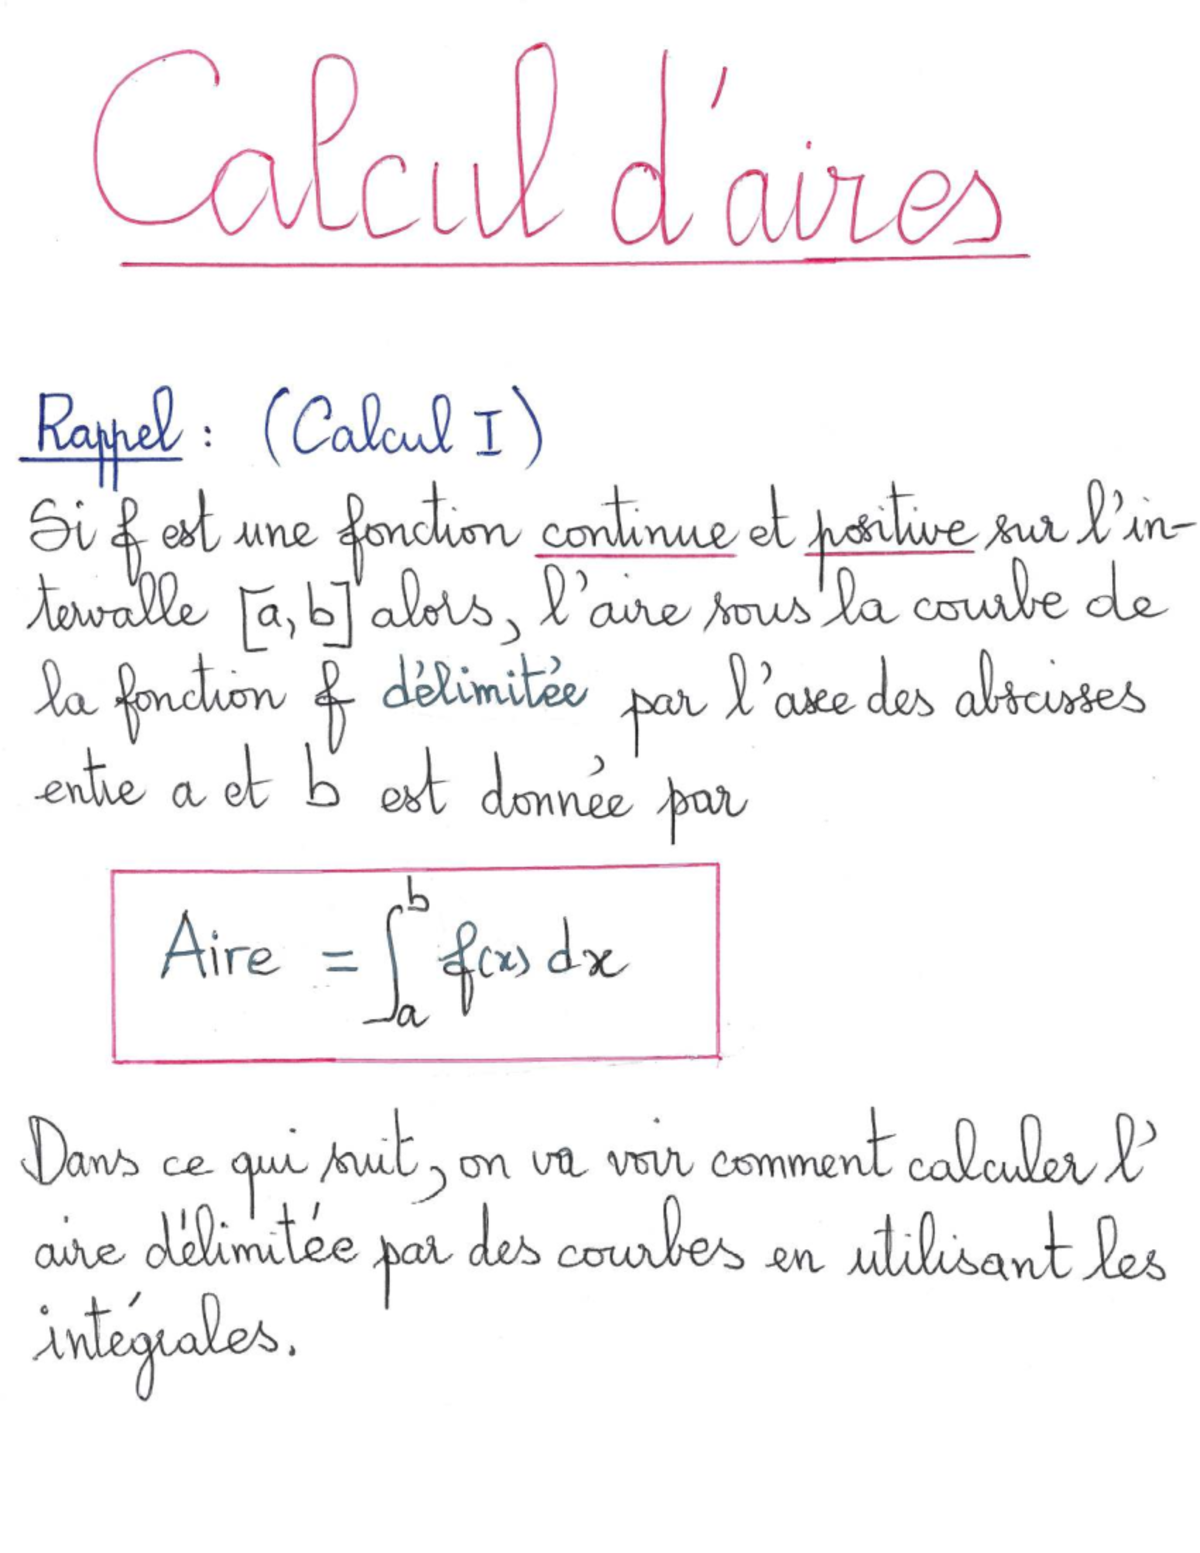 Calcul d'aires
Rappel : (Calcul I)
Si f est une fonction continue et positive sur l'in-
tervalle [a, b] alors, l'aire sous la courbe de
la fonction f délimitée par l'axe des abscisses
entre a et b est donnée par
Aire = ∫_a^b f(x) dx
Dans ce qui suit, on va voir comment calculer l'
aire délimitée par des courbes en utilisant les
intégrales.